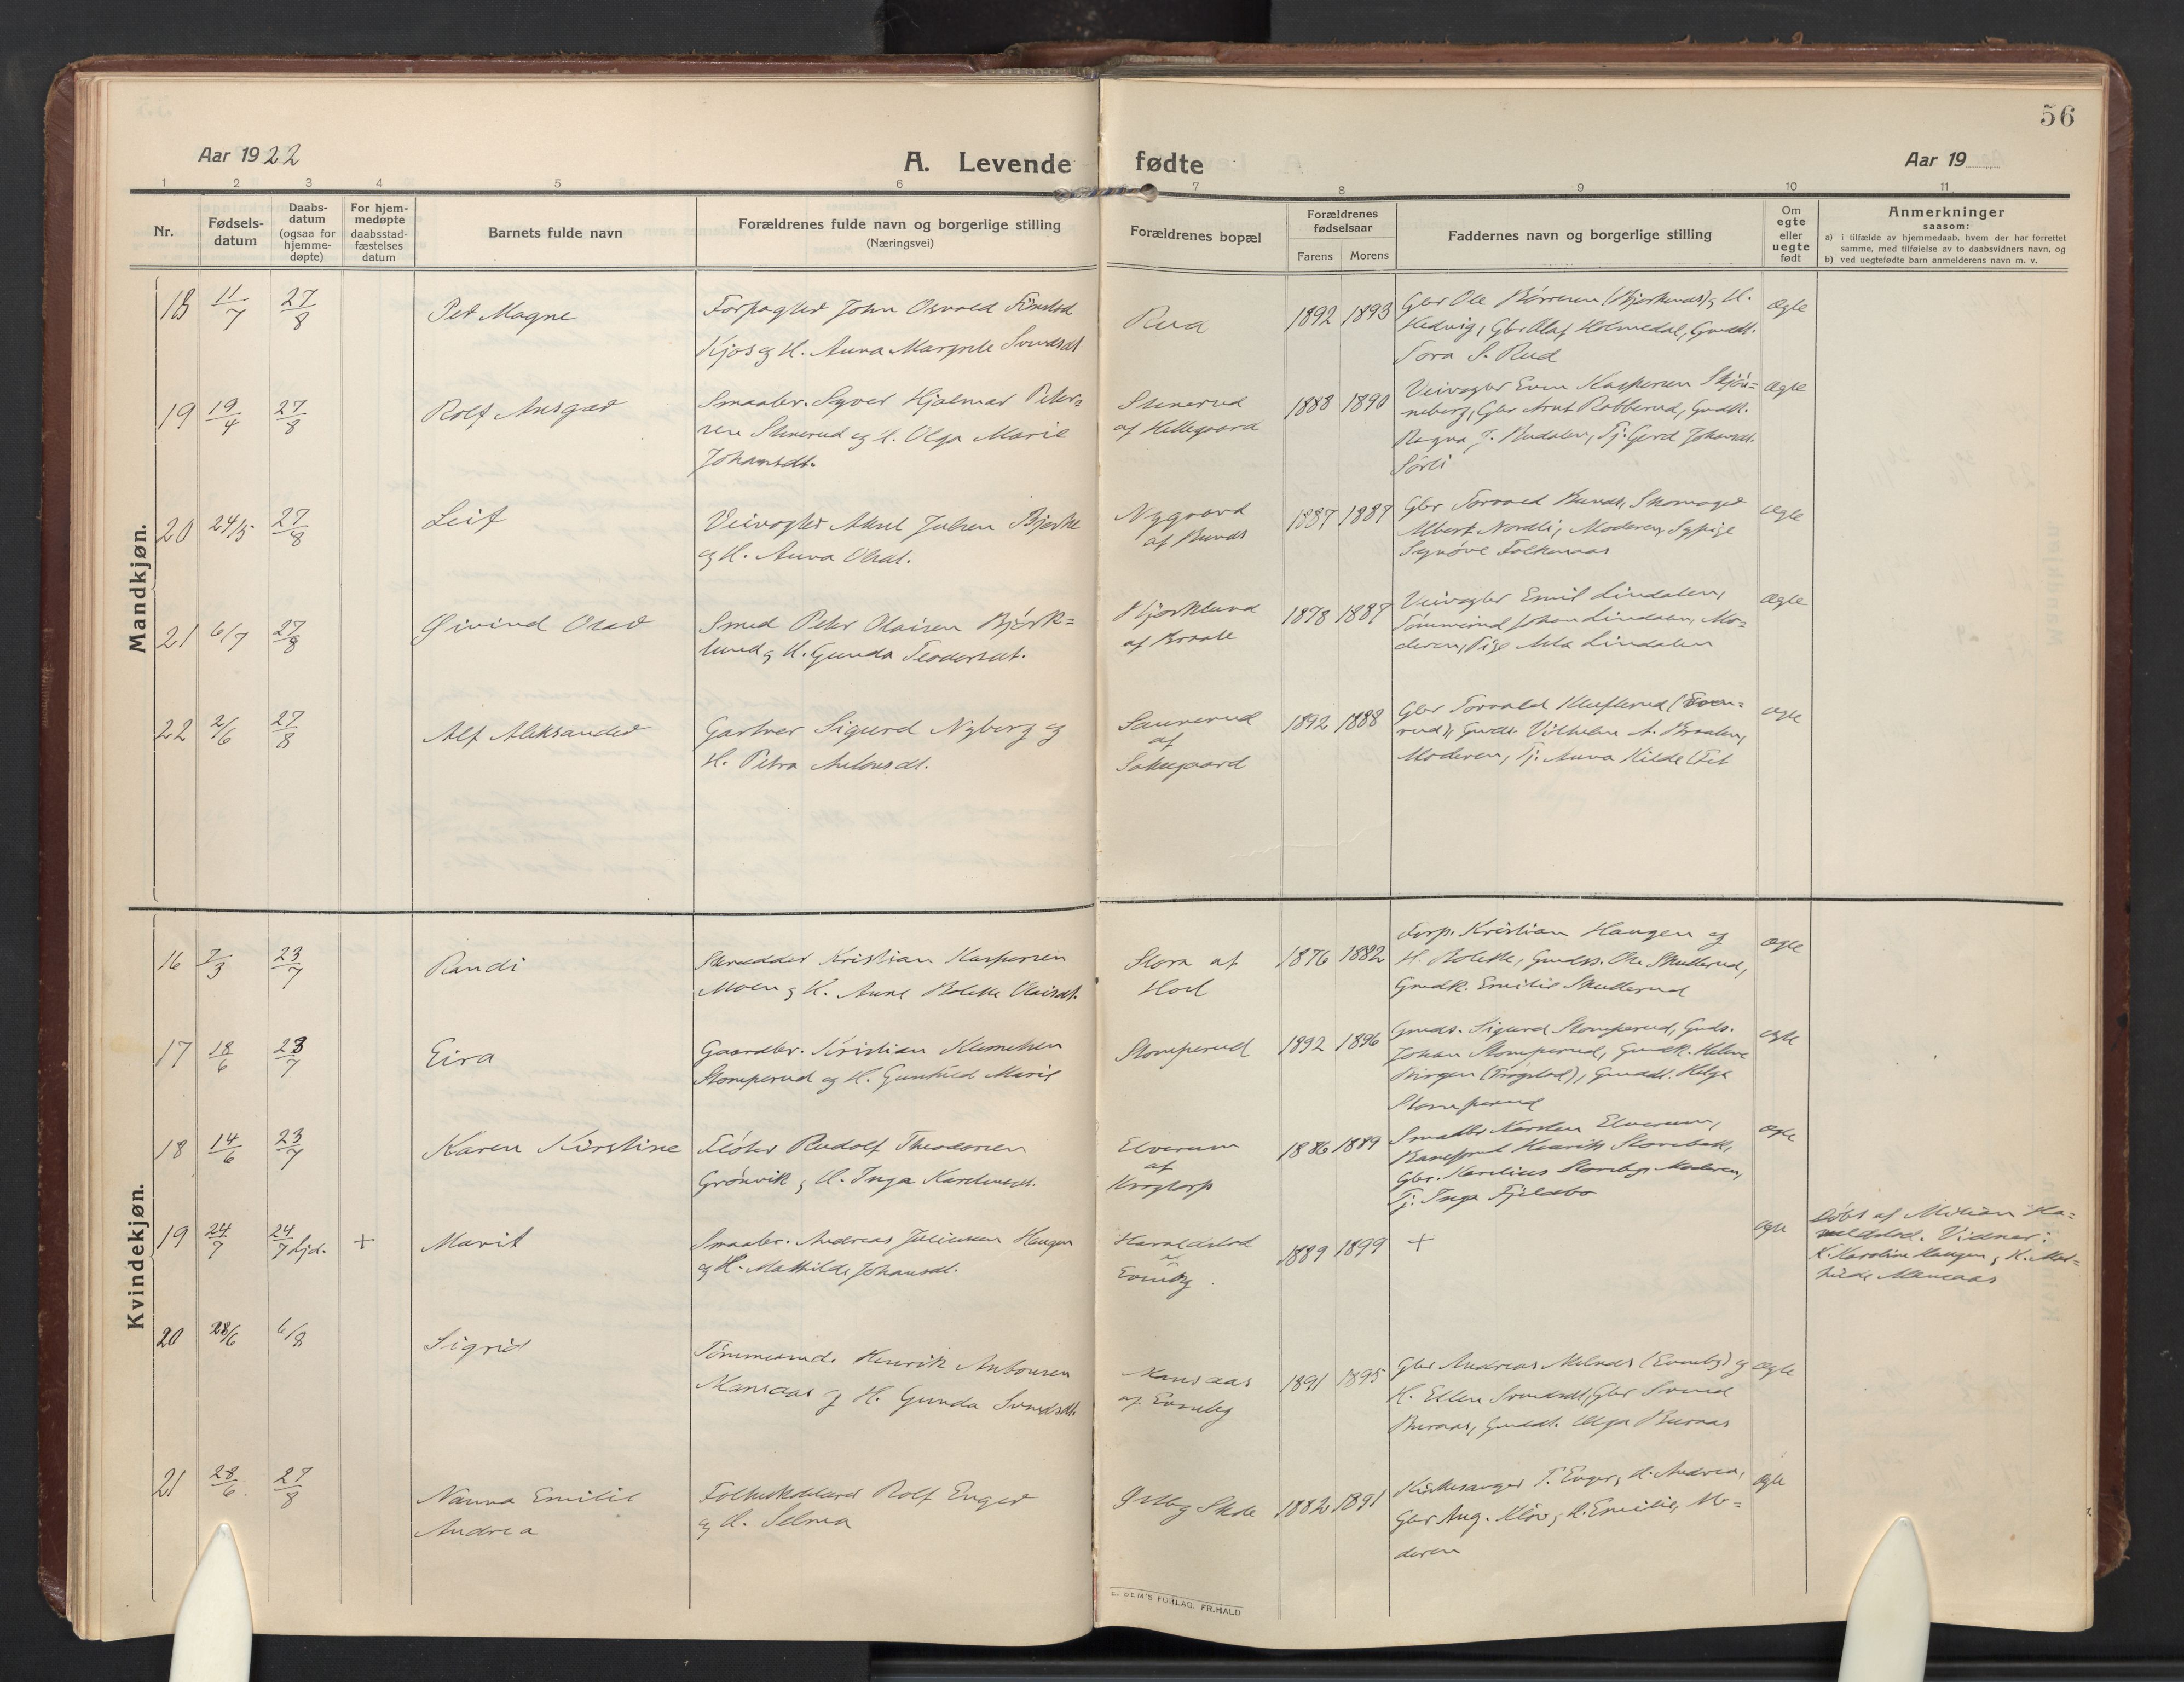 56
Aar 1922
A. Levende fødte
Aar 19
1 2 3 4 5 6 7 8 9 10 11
Nr.
Fødsels-
datum
Daabs-
datum
(ogsaa for
hjemme-
døpte)
For hjem-
medøpte
daabsstad-
fæstelses
datum
Barnets fulde navn
Forældrenes fulde navn og borgerlige stilling
(Næringsvei)
Forældrenes bopæl
Forældrenes
fødselsaar
Farens Morens
Faddernes navn og borgerlige stilling
Om
egte
eller
uegte
født
Anmerkninger
saasom:
a) i tilfælde av hjemmedaab, hvem der har forrettet
samme, med tilføielse av to daabsvidners navn, og
b) ved uegtefødte barn anmelderens navn m. v.
Mandkjøn.
18 11/7 27/8
Per Magne
Forpagter John Osvald
Kjos og H. Anna Margrete
Rua
1892 1893
Gbr Ole
Hedvig, Gbr Olaf Holmedal, Gaardd.
Tora S. Rud
Ægte
19 19/4 27/8
Rolf Ansgar
Smaabr. Syver Hjalmar Peter=
sen Stenerud og H. Olga Marie
Johansdt.
Stenerud
af Hellegaard
1888 1890
Veivogter Even Kaspersen Skjøn=
neberg, Gbr Arnt Robberud, Gaardk.
Ragna J. Budalen, Tj. Gerd Johansdt.
Sørli
Ægte
20 24/5 27/8
Leif
Veivogter Aksel Julsen Bjerke
og H. Anna Olsdt.
Nygaard
af Bunds
1887 1887
Gbr Torvald Bunds, Skomager
Albert Nordli, Moderen, Sypige
Synøve
Ægte
21 6/7 27/8
Øivind Olav
Smed Peter Olaisen Bjørk=
lund og H. Gunda Teodorsdt.
Bjørklund
af Braate
1878 1887
Veivogter Emil Lindalen,
Tømmermd Johan Lindalen, Mo=
deren, Pige Lindalen
Ægte
22 2/6 27/8
Alf Aleksander
Gartner Sigurd Nyberg og
H. Petra
af
1892 1888
Gbr Torvald
Vilhelm A. Braaten,
Moderen, Tj. Anna Kilde
Ægte
Kvindekjøn.
16 7/3 23/7
Randi
Skrædder Kristian Kaspersen
Moen og H. Anne Bolette Olaisdt.
Slora af
Hoel
1876 1882
Forp. Kristian Haugen og
H. Bolette, Gaards. Ole Skullerud,
Gaardk. Emilie Skullerud
Ægte
17 18/6 23/7
Eira
Gaardbr. Kristian Klemetsen
Stomperud og H. Gunhild Marie
Stomperud
1892 1896
Gaards. Sigurd Stomperud, Gaards.
Johan Stomperud, Gaardk. Helene
(Trøgstad), Gaardd. Helga
Stomperud
Ægte
18 14/6 23/7
Karen Kirstine
Fløter Rudolf Theodorsen
Grønvik og H. Inga
Elverum
af
Krogtorp
1886 1889
Smaabr Karsten Elverum,
Henrik Storebak,
Gbr. Moderen,
Tj. Inga Fjeldbo
Ægte
19 24/7 24/7 hjd. +
Marit
Smaabr. Andreas Juliussen Haugen
og H. Mathilde Johansdt.
Haraldstad
Evenby
1889 1899
+
Ægte
Døbt af
Vidner:
K. Karoline Haugen, K. Mat=
hilde Mansaas
20 28/6 6/8
Sigrid
Henrik Antonsen
Mansaas og H. Gunda Svendsdt.
Mansaas
af Evenby
1891 1895
Gbr Andreas (Evenby) og
H. Ellen Svendsdt, Gbr Svend
Buraas, Gaardd. Olga Buraas
Ægte
21 28/6 27/8
Nanna Emilie
Andrea
Folkeskolelærer Rolf Enger
og H. Selma
Skole
1882 1891
Kirkesanger T. Enger, H. Andrea,
Gbr Aug. Kløv, H. Emilie, Mo=
deren
Ægte
FORLAG, FR. HALD